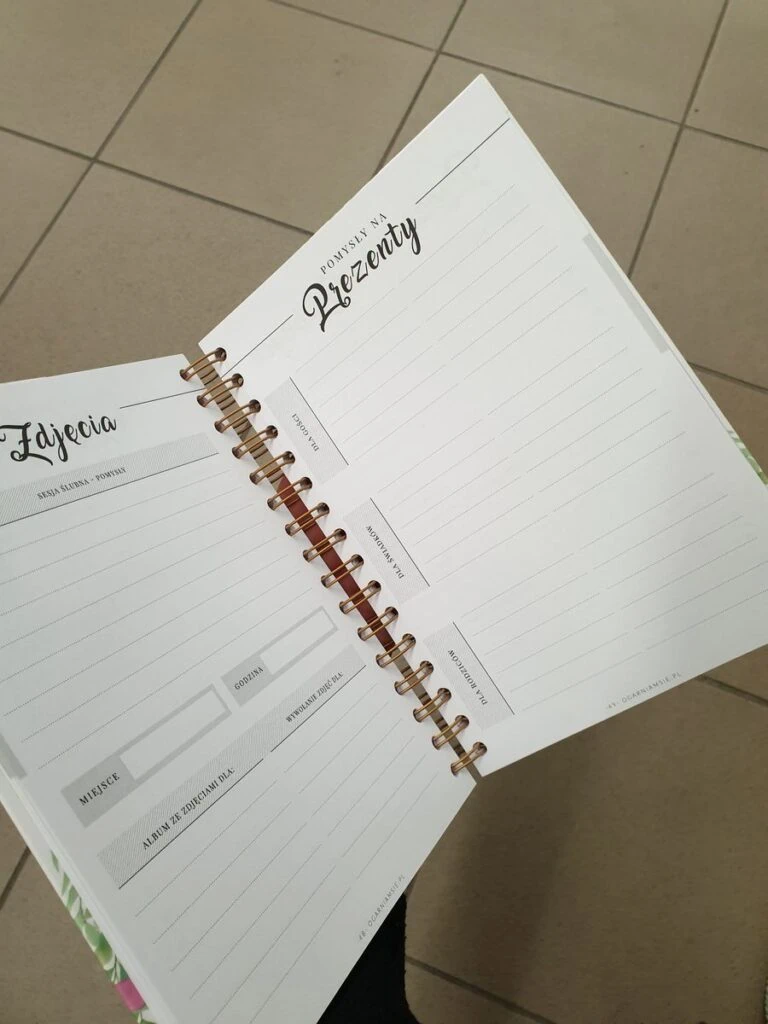 Zdjęcia
SESJA ŚLUBNA - POMYSŁY
MIEJSCE
GODZINA
ALBUM ZE ZDJĘCIAMI DLA:
WYWOŁANIE ZDJĘĆ DLA:
-48- OGARNIAMSIE.PL
POMYSŁY NA
Prezenty
DLA GOŚCI
DLA ŚWIADKÓW
DLA RODZICÓW
-49- OGARNIAMSIE.PL